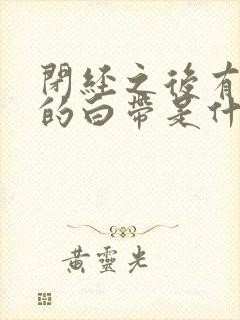 閉經之後有
的白帶是什
黃靈光